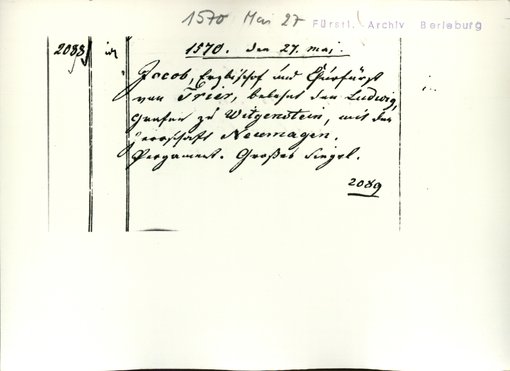 1570 Mai 27
Fürstl. Archiv Berleburg
2088
1570. den 27. Mai.
Jacob, Erzbischof und Churfürst
von Trier, belehnt den Ludwig,
Grafen zu Witgenstein, mit der
Herrschaft Neumagen.
Pergament. Großes Siegel.
2089